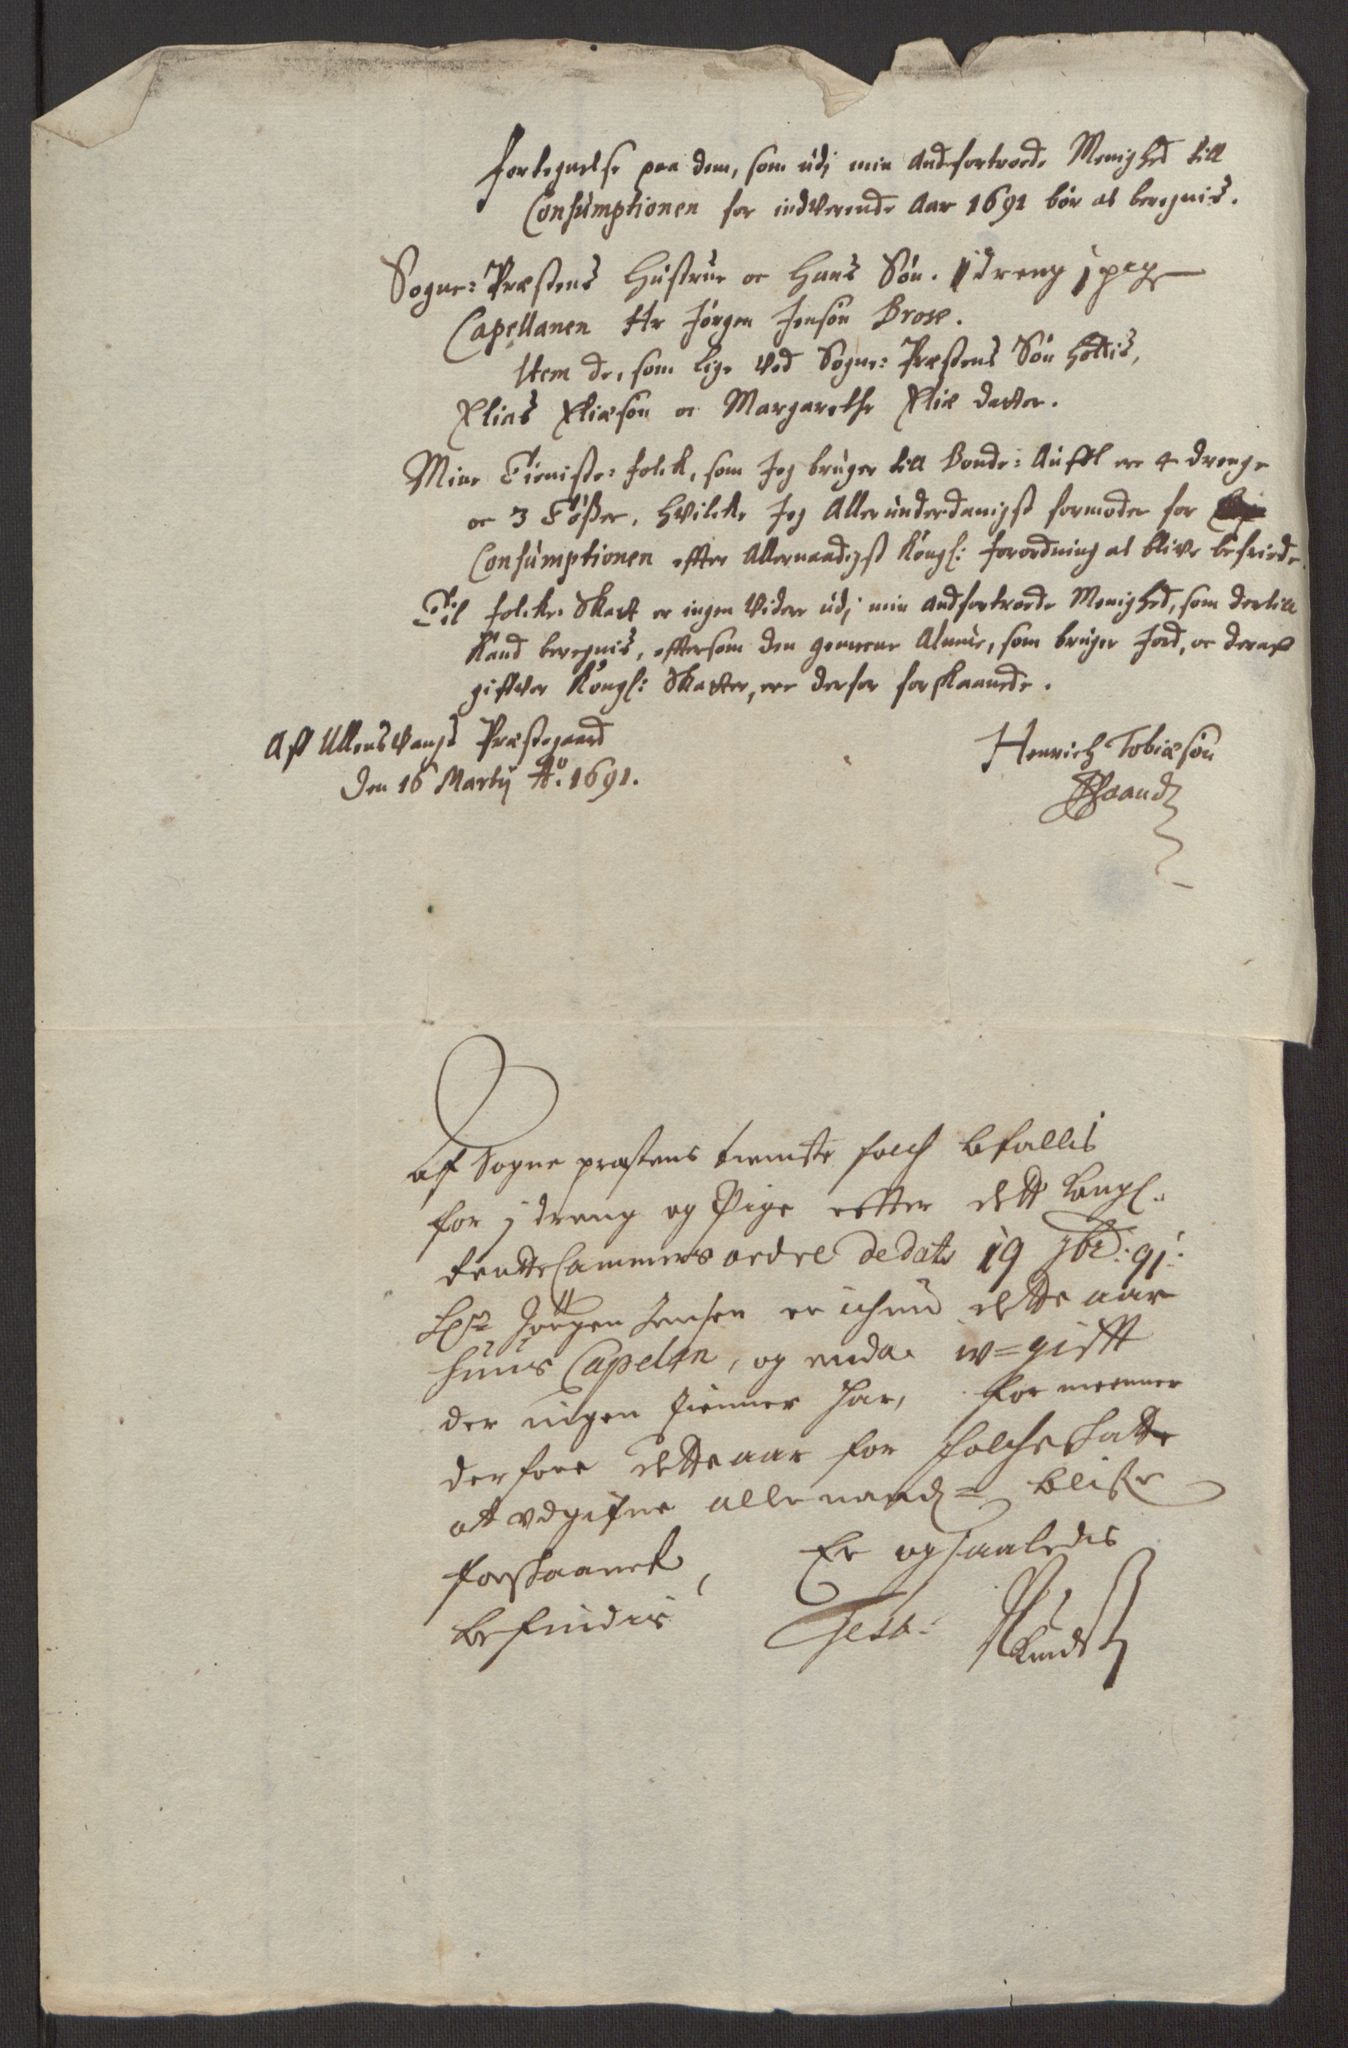 Fortegnelse paa dem, som udj min Andfortroede Menighed till
Consumptionen for indverende Aar 1691 bør at beregnis.
Sogne: Præstens Hustrue oc Hans Søn. 1 dreng 1 pige
Capellanen Hr Jørgen Jensøn Brose.
Item de, som lige ved Sogne: Præstens Søn holdis,
Elias Eliæsøn oc Margarethe Eliæ datter.
Mine Tieniste: folck, som Jeg bruger till Bonde: Aufl ere 4 drenge
oc 3 Tøßer, hvilcke Jeg Allerunderdanigst formoder for
Consumptionen effter Allernaadigst Kongl: forordning at blive befriede.
Til folcke Skatt er ingen videre udj min andfortroede Menighed, som dertill
Kand beregnis, eftersom den gemeene Almue, som bruger Jord, oc deraf
gifver Kongl: Skatter, ere derfor forskaanede.
Aff Ullensvangs Præstegaard
Den 16 Martij Ao. 1691.
Henrich Tobiæsøn
Af Sogne præstens tieniste folch befallis
for j dreng og Pige efter dett Kongl.
RentteCammers ordre de dato 19 xbr: 91:
Hr Jørgen Jensen er ichun dette aar
hans Capelan, og enda w=gifft
der ingen tienner har, formeenner
derfore dette aar for folcheskatte
att udgifue allernaad= blifue
forskaanet, Er og saaledis
befindis Test: